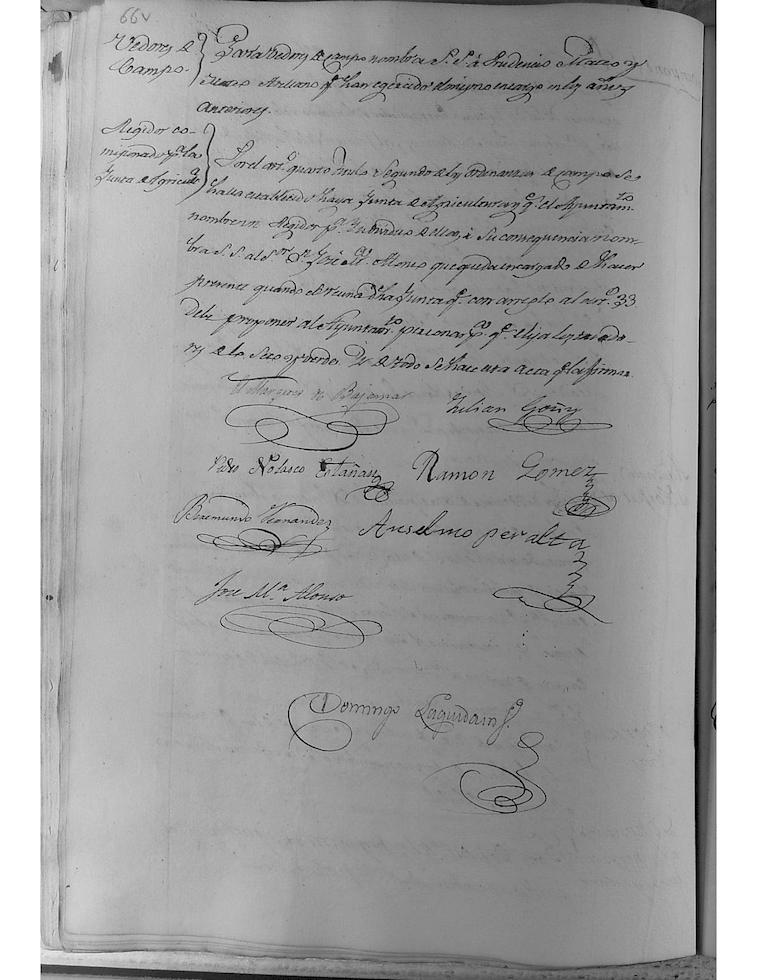 66v
Vedores de
Campo.
Para Vedores de campo nombra S. S. á Prudencio Mateo y
Arellano qe. han egercido el mismo encargo en los años
anteriores.
Regidor co-
misionado pa. la
Junta de Agricult.
Por el arto. quarto titulo Segundo de las ordenanzas de campo se
halla establecido haya Junta de Agricultura y qe. el Ayuntamto.
nombre un Regidor pa. Individuo de ella, á su consequencia nom-
bra S. S. al Sor. Dn. José Ma. Alonso que queda encargado de hacer
presente quando se reuna dha Junta qe. con arreglo al arto. 33
debe proponer al Ayuntamto. personas pa. qe. elija los
de lo Seco y verde. Y de todo se hace esta acta qe. la firma
El Marques de Bajamar
Julian Goñy
Pedro Nolasco Estañan
Ramon Gomez
Beremundo Hernandez
Anselmo peralta
Jose Ma. Alonso
Domingo Laquidain